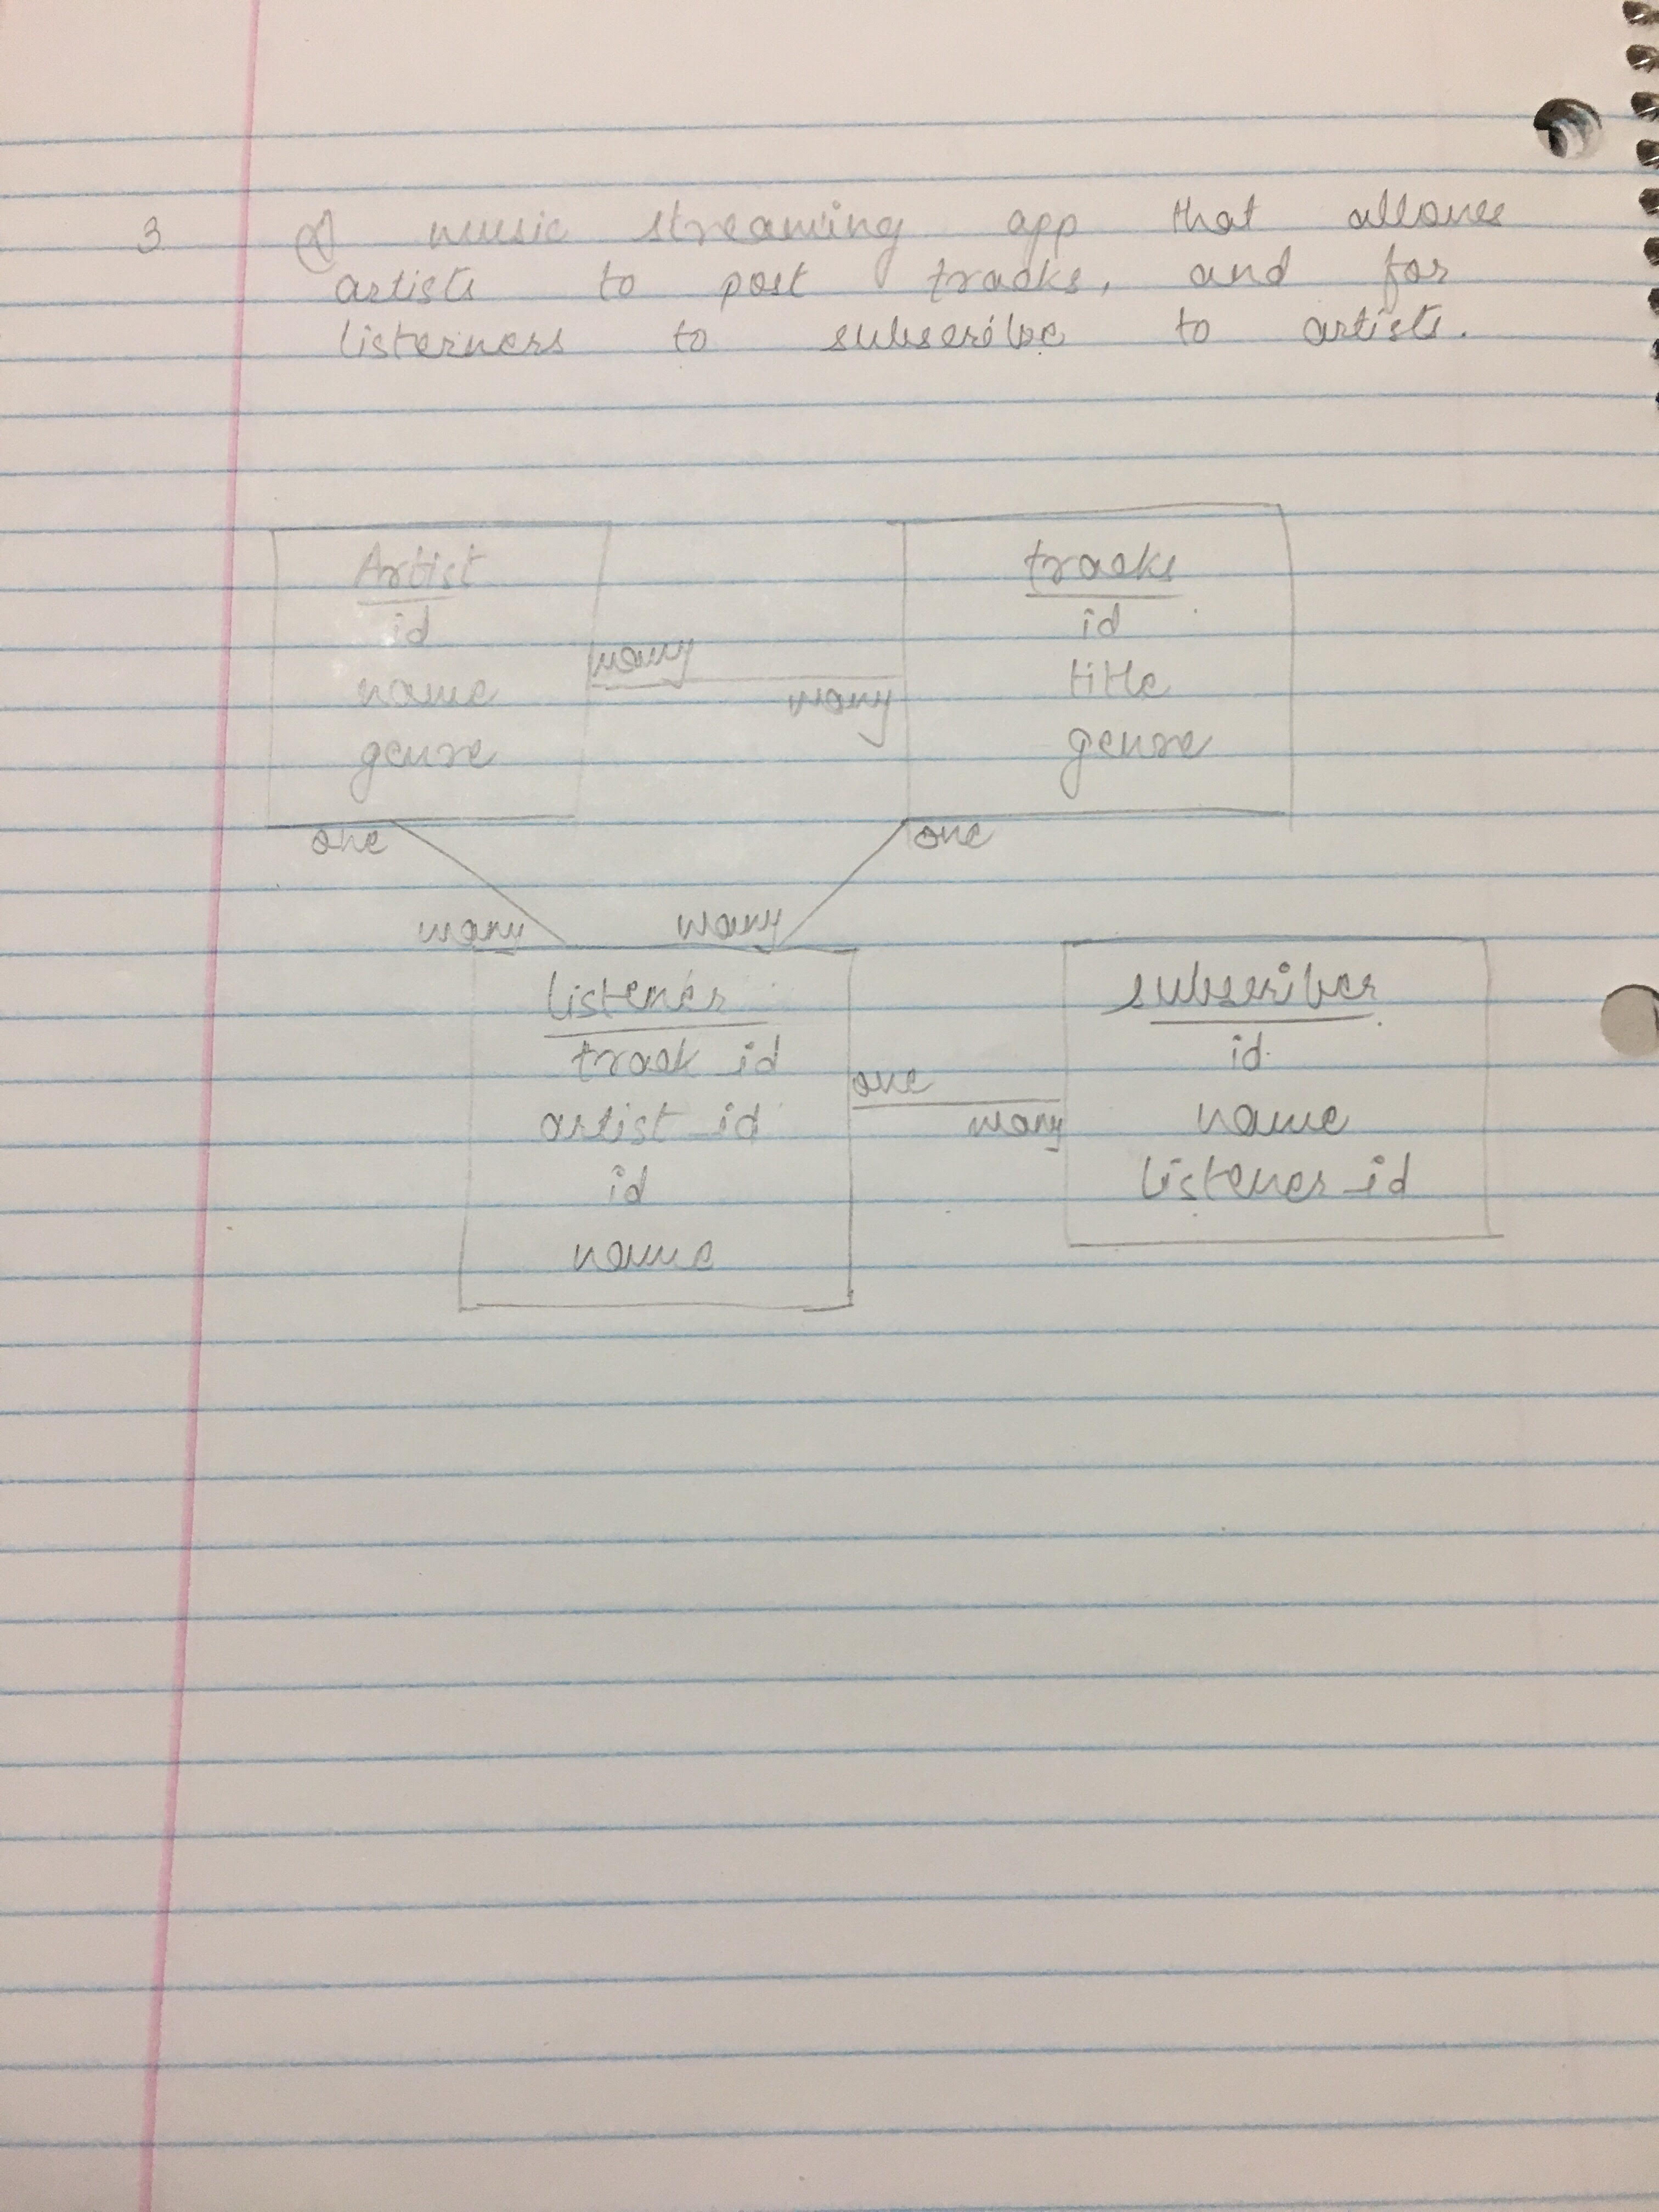 3 A music streaming app that allows
artists to post tracks, and for
listerners to subscribe to artists.
Artist
id
name
genre
many
many
tracks
id
title
genre
one
many
one
many
listener
track_id
artist_id
id
name
one
many
subscriber
id
name
listener_id